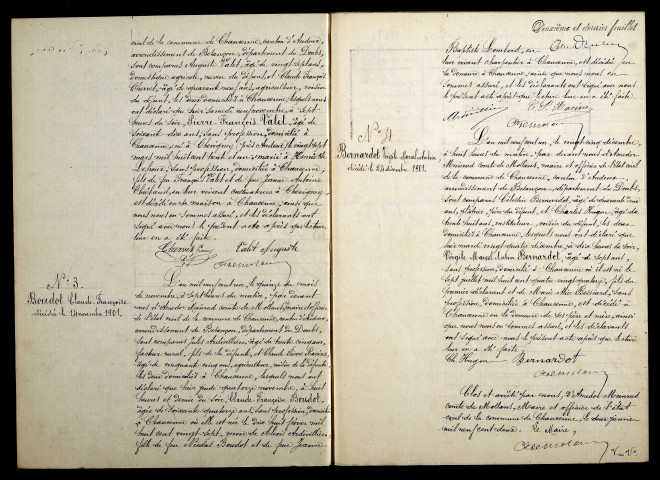 civil de la commune de Chancenne, canton d'Audeux,
arrondissement de Besançon, département du Doubs,
sont comparus Auguste Valet, âgé de vingt sept ans,
domestique agricole, neveu du défunt, et Claude François
âgé de quarante neuf ans, agriculteur, voisin
du défunt, les deux domiciliés à Chancenne, lesquels nous
ont déclaré que hier samedi neuf novembre, à sept
heures du soir, Pierre François Valet, âgé de
soixante dix ans, sans profession, domicilié à
Chancenne, né à Chevigney, près Audeux, le vingt sept
mars mil huit cent trente et un, marié à
sans profession, domiciliée à Chancenne,
fils de feu François Valet et de feu Jeanne Antoine
en leur vivant cultivateurs à Chevigney,
est décédé en sa maison à Chancenne, ainsi que
nous nous en sommes assuré, et les déclarants ont
signé avec nous le présent acte après que lecture
leur en a été faite.
Valet auguste
N° 3.
Boudot Claude Françoise
décédée le 14 novembre 1901.
L'an mil neuf cent un, le quinze du mois
de novembre, à sept heures du matin, par devant
nous d'Amédor Mainrad comte de Mollans, maire et officier
de l'état civil de la commune de Chancenne, canton d'Audeux,
arrondissement de Besançon, département du Doubs,
sont comparus Jules Ardevillers, âgé de trente cinq ans,
facteur rural, fils de la défunte, et Claude
âgé de cinquante cinq ans, agriculteur, voisin de la défunte,
les deux domiciliés à Chancenne, lesquels nous ont
déclaré que hier jeudi quatorze novembre, à huit
heures et demie du soir, Claude Françoise Boudot
âgée de soixante quatorze ans, sans profession, domiciliée
à Chancenne où elle est née le dix huit février mil
huit cent vingt sept, veuve de Ardevillers
fille de feu Nicolas Boudot et de feue Jeanne
Deuxième et dernier feuillet
Baptiste Lombard, en
leur vivant charpentier à Chancenne, est décédée en
sa demeure à Chancenne, ainsi que nous nous en
sommes assuré, et les déclarants ont signé avec nous
le présent acte après que lecture leur en a été faite.
N° 4
Bernardot Virgile
décédé le 24 décembre 1901.
L'an mil neuf cent un, le vingt cinq décembre
à huit heures du matin, par devant nous d'Amédor
Mainrad comte de Mollans, maire et officier de l'état
civil de la commune de Chancenne, canton d'Audeux
arrondissement de Besançon, département du Doubs,
sont comparus Célestin Bernardot, âgé de quarante
ans, père du défunt, et Charles Hugon, âgé de
trente huit ans, instituteur, voisin du défunt, les deux
domiciliés à Chancenne, lesquels nous ont déclaré que
hier mardi vingt quatre décembre à dix heures du soir,
Virgile Marcel Bernardot, âgé de sept ans,
sans profession, domicilié à Chancenne où il est né le
sept juillet mil huit cent quatre vingt quatorze, fils du
premier déclarant et de Marie sans
profession, domiciliée à Chancenne, est décédé à
Chancenne en la demeure de ses père et mère, ainsi
que nous nous en sommes assuré, et les déclarants
ont signé avec nous le présent acte après que lecture
leur en a été faite.
Ch. Hugon Bernardot
Clos et arrêté par nous, d'Amédor Mainrad
comte de Mollans, Maire et officier de l'état
civil de la commune de Chancenne, le deux janvier
mil neuf cent deux. Le Maire,